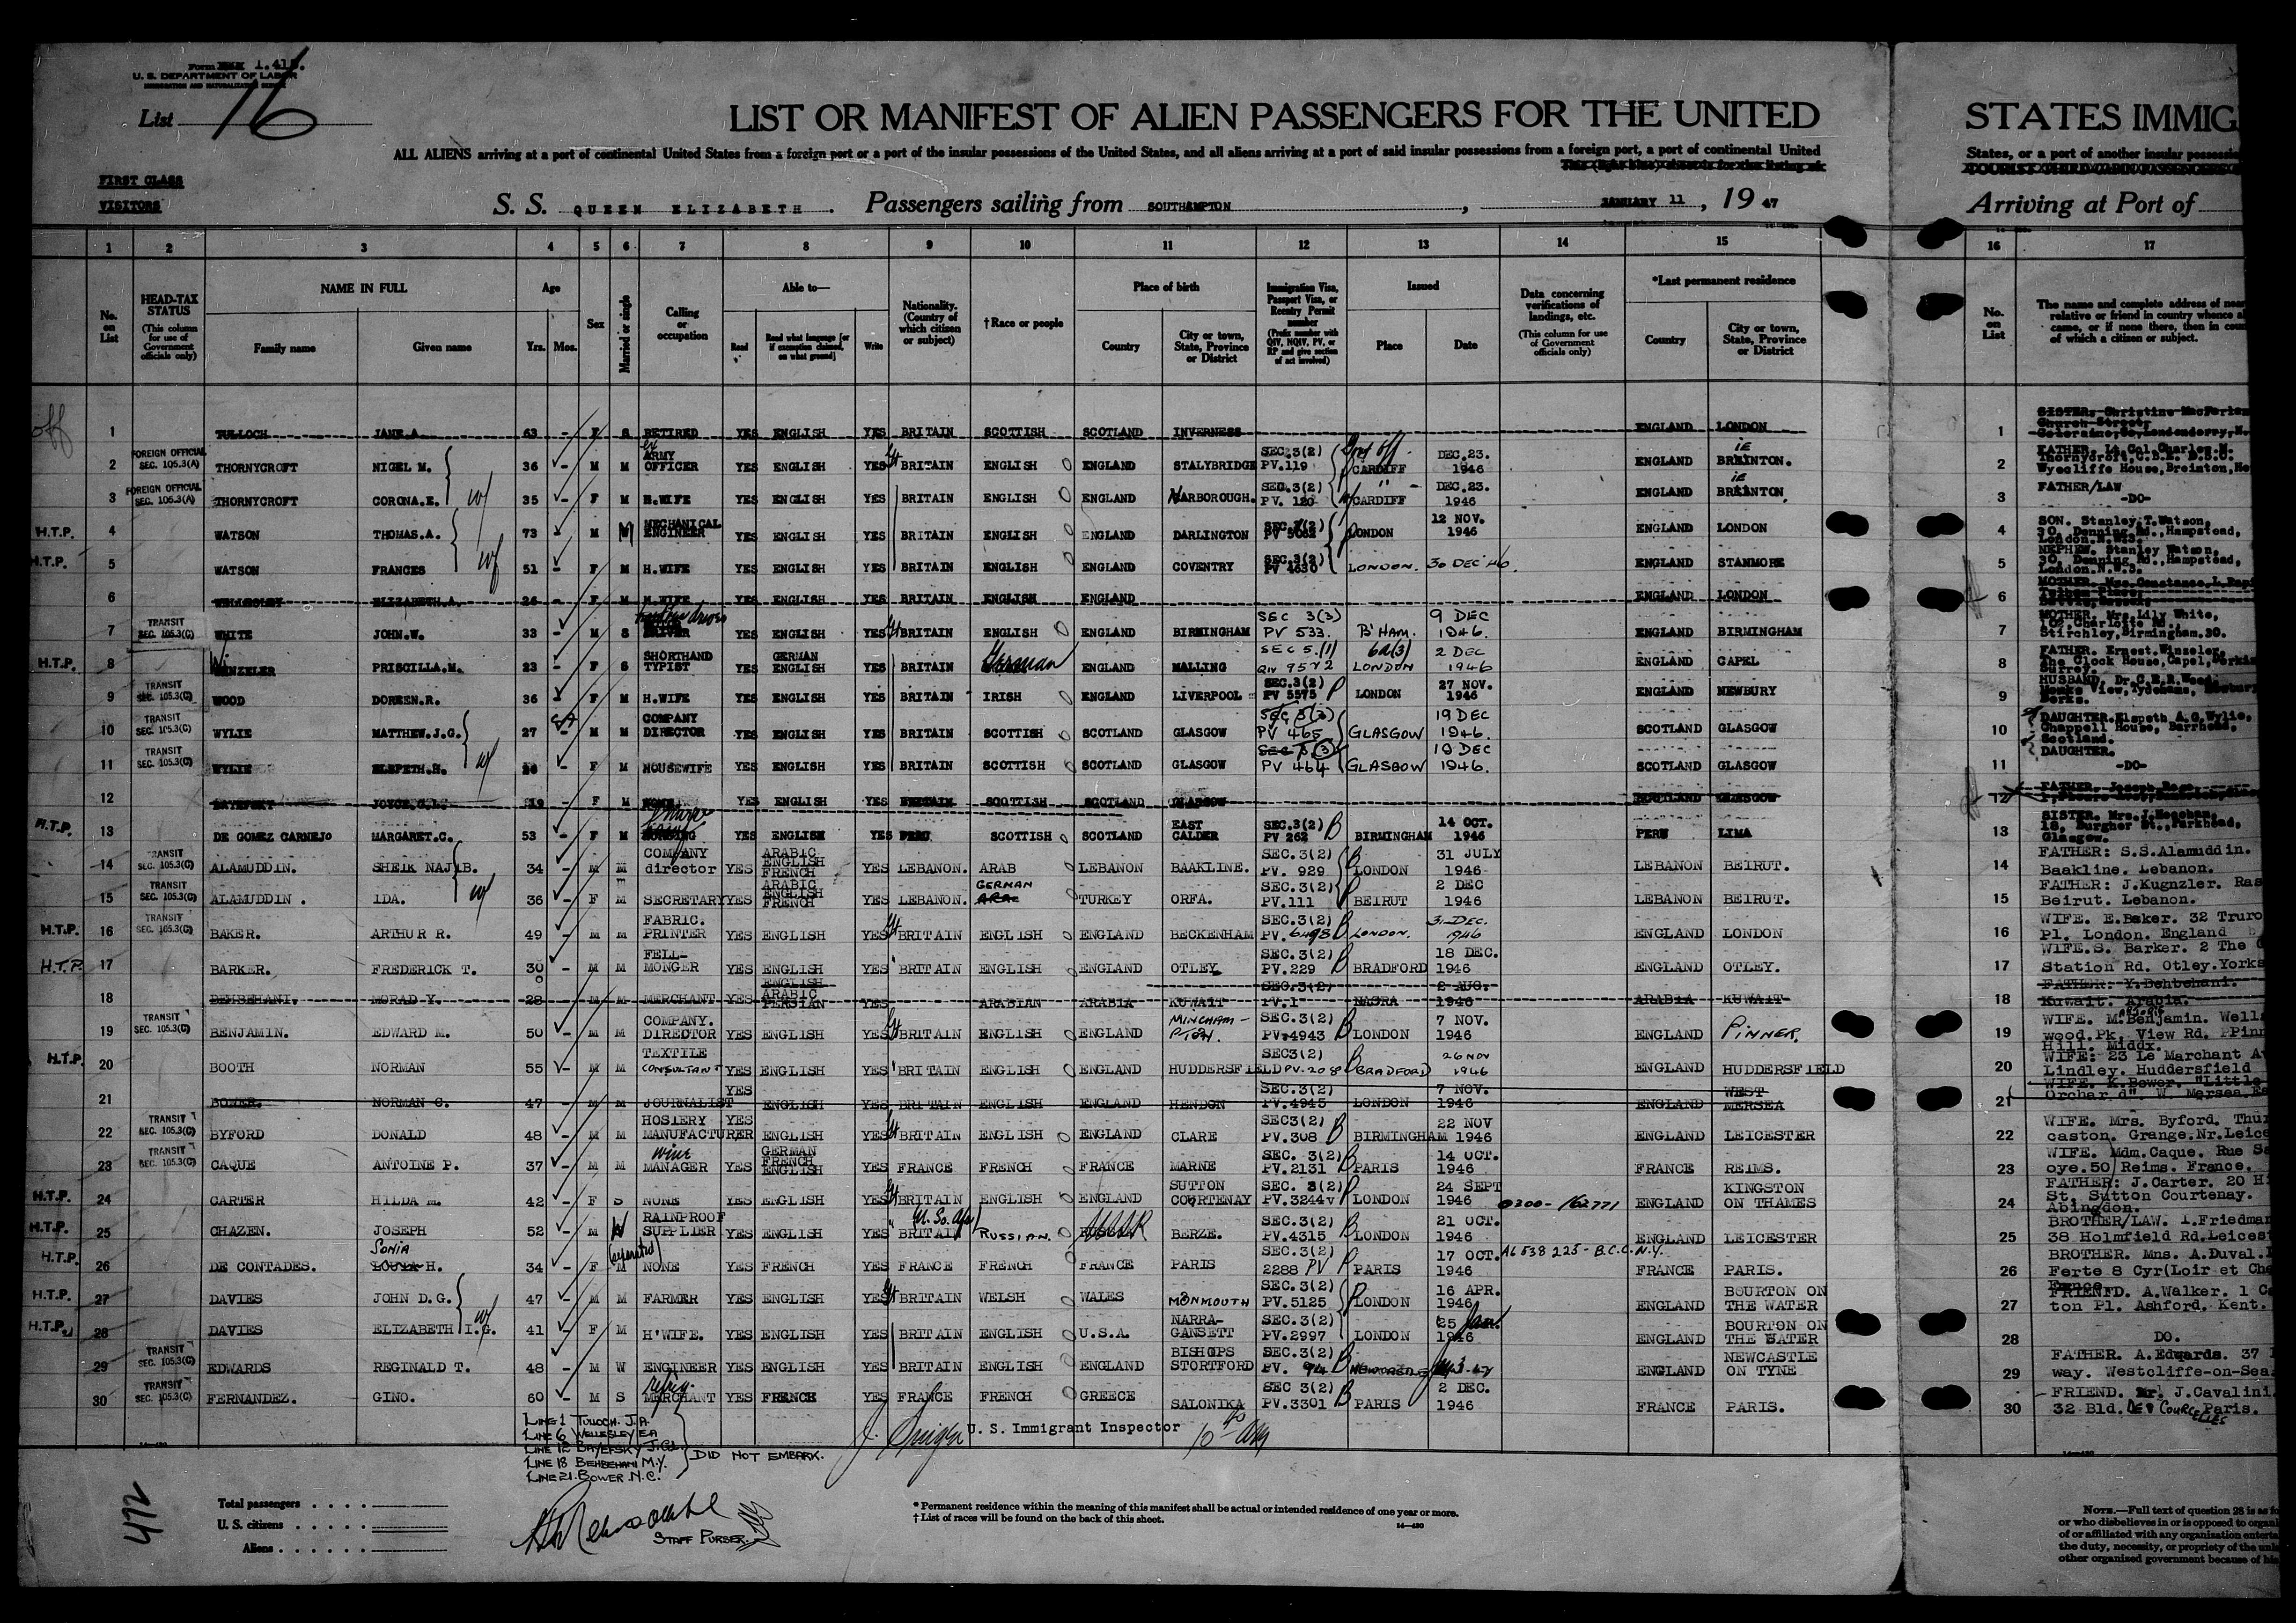 Form 1.415.
U. S. DEPARTMENT OF LABOR
IMMIGRATION AND NATURALIZATION SERVICE
List 16
LIST OR MANIFEST OF ALIEN PASSENGERS FOR THE UNITED
STATES IMMIG
ALL ALIENS arriving at a port of continental United States from a foreign port or a port of the insular possessions of the United States, and all aliens arriving at a port of said insular possessions from a foreign port, a port of continental United
States, or a port of another insular possessi
FIRST CLASS
VISITORS
S. S. QUEEN ELIZABETH. Passengers sailing from SOUTHAMPTON, JANUARY 11, 19 47
Arriving at Port of
1 2 3 4 5 6 7 8 9 10 11 12 13 14 15 16 17
No. on List
HEAD-TAX STATUS (This column for use of Government officials only)
NAME IN FULL
Family name
Given name
Age
Yrs. Mos.
Sex
Married or single
Calling or occupation
Able to—
Read
Read what language [or if exemption claimed, on what ground]
Write
Nationality. (Country of which citizen or subject)
†Race or people
Place of birth
Country
City or town, State, Province or District
Immigration Visa, Passport Visa, or Reentry Permit number (Prefix number with QIV, NQIV, PV, or RP and give section of act involved)
Issued
Place
Date
Data concerning verifications of landings, etc. (This column for use of Government officials only)
*Last permanent residence
Country
City or town, State, Province or District
No. on List
The name and complete address of near
relative or friend in country whence a
came, or if none there, then in coun
of which a citizen or subject.
off 1 TULLOCH JANE.A. 63 – F S RETIRED YES ENGLISH YES BRITAIN SCOTTISH SCOTLAND INVERNESS ENGLAND LONDON 1 SISTER. Christine MacFarlan Church Street,
2 FOREIGN OFFICIAL SEC. 105.3(A) THORNYCROFT NIGEL M. 36 – M M ex ARMY OFFICER YES ENGLISH YES BRITAIN ENGLISH ENGLAND STALYBRIDGE SEC.3(2) PV.119 CARDIFF DEC.23. 1946 ENGLAND BREINTON. 2 FATHER. Lt.Col.Charles.M. Thornycroft,C.B.E. D.S.O. Wycliffe House,Breinton,He
3 FOREIGN OFFICIAL SEC. 105.3(A) THORNYCROFT CORONA.E. 35 – F M H.WIFE YES ENGLISH YES BRITAIN ENGLISH ENGLAND NARBOROUGH. SEC.3(2) PV. 120 CARDIFF DEC.23. 1946 ENGLAND BREINTON 3 FATHER/LAW -DO-
H.T.P. 4 WATSON THOMAS.A. 73 – M M MECHANICAL ENGINEER YES ENGLISH YES BRITAIN ENGLISH ENGLAND DARLINGTON SEC.3(2) PV 5062 LONDON 12 NOV. 1946 ENGLAND LONDON 4 SON. Stanley.T.Watson, 30, Denning Rd.,Hampstead, London.N.W3.
H.T.P. 5 WATSON FRANCES 51 – F M H.WIFE YES ENGLISH YES BRITAIN ENGLISH ENGLAND COVENTRY SEC.3(2) PV 4630 LONDON. 30 DEC '46. ENGLAND STANMORE 5 NEPHEW. Stanley Watson, 30, Denning Rd.,Hampstead, London.N.W.3.
6 WELLESLEY ELIZABETH.A. 26 – F M H.WIFE YES ENGLISH YES BRITAIN ENGLISH ENGLAND ENGLAND LONDON 6
7 TRANSIT SEC. 105.3(C) WHITE JOHN.W. 33 – M S DRIVER YES ENGLISH YES BRITAIN ENGLISH ENGLAND BIRMINGHAM SEC 3(3) PV 533. B'HAM. 9 DEC 1946. ENGLAND BIRMINGHAM 7 MOTHER. Mrs.Lily White, Charlotte Rd., Stirchley,Birmingham.30.
H.T.P. 8 WINZELER PRISCILLA.M. 23 – F S SHORTHAND TYPIST YES GERMAN ENGLISH YES BRITAIN German ENGLAND MALLING SEC 5.(1) 6a(3) LONDON 2 DEC 1946 ENGLAND CAPEL 8 FATHER. Ernest.Winzeler, The Clock House,Capel, Surrey.
9 TRANSIT SEC. 105.3(C) WOOD DOREEN.R. 36 – F M H.WIFE YES ENGLISH YES BRITAIN IRISH ENGLAND LIVERPOOL SEC.3(2) PV 5575 LONDON 27 NOV. 1946 ENGLAND NEWBURY 9 HUSBAND. Dr.C.E.R.Wood,
10 TRANSIT SEC. 105.3(C) WYLIE MATTHEW.J.G. 27 – M M COMPANY DIRECTOR YES ENGLISH YES BRITAIN SCOTTISH SCOTLAND GLASGOW SEC 3(3) PV 465 GLASGOW 19 DEC 1946. SCOTLAND GLASGOW 10 DAUGHTER.Elspeth A.G.Wylie, Chappell House, Barrhead, Scotland.
11 TRANSIT SEC. 105.3(C) WYLIE ELSPETH.H. 26 – F M HOUSEWIFE YES ENGLISH YES BRITAIN SCOTTISH SCOTLAND GLASGOW PV 464 GLASGOW 19 DEC 1946. SCOTLAND GLASGOW 11 DAUGHTER. -DO-
12 BAYEFSKY JOYCE.G.L. 19 – F M NONE YES ENGLISH YES BRITAIN SCOTTISH SCOTLAND GLASGOW SCOTLAND GLASGOW 12
H.T.P. 13 DE GOMEZ CARNEJO MARGARET.C. 53 – F M YES ENGLISH YES PERU SCOTTISH SCOTLAND EAST CALDER SEC.3(2) PV 262 BIRMINGHAM 14 OCT. 1946 PERU LIMA 13 SISTER. Mrs.J.Meechan, 18, Burgher St.,Parkhead, Glasgow.
14 TRANSIT SEC. 105.3(C) ALAMUDDIN. SHEIK NAJIB. 34 – M M COMPANY director YES ARABIC ENGLISH FRENCH YES LEBANON. ARAB LEBANON BAAKLINE. SEC.3(2) PV. 929 LONDON 31 JULY 1946 LEBANON BEIRUT. 14 FATHER: S.S.Alamuddin. Baakline. Lebanon.
15 TRANSIT SEC. 105.3(C) ALAMUDDIN . IDA. 36 – F M SECRETARY YES ARABIC ENGLISH FRENCH YES LEBANON. GERMAN TURKEY ORFA. SEC.3(2) PV.111 BEIRUT 2 DEC 1946 LEBANON BEIRUT. 15 FATHER: J.Kugnzler. Ras Beirut. Lebanon.
H.T.P. 16 TRANSIT SEC. 105.3(C) BAKER. ARTHUR R. 49 – M M FABRIC. PRINTER YES ENGLISH YES BRITAIN ENGLISH ENGLAND BECKENHAM SEC.3(2) PV. 6498 LONDON. 31 DEC. 1946 ENGLAND LONDON 16 WIFE. E.Baker. 32 Truro Pl. London. England
H.T.P. 17 BARKER. FREDERICK T. 30 – M M FELL- MONGER YES ENGLISH YES BRITAIN ENGLISH ENGLAND OTLEY SEC.3(2) PV.229 BRADFORD 18 DEC. 1946 ENGLAND OTLEY. 17 WIFE.S. Barker. 2 The Station Rd. Otley.Yorks
18 BEHBEHANI. MORAD Y. 28 – M M MERCHANT YES ENGLISH ARABIC PERSIAN YES ARABIAN ARABIA KUWAIT SEC.3(2) PV.1 BASRA 2 AUG. 1946 ARABIA KUWAIT 18 FATHER: Y.Behbehani. Kuwait. Arabia.
19 TRANSIT SEC. 105.3(C) BENJAMIN. EDWARD M. 50 – M M COMPANY. DIRECTOR YES ENGLISH YES BRITAIN ENGLISH ENGLAND SEC.3(2) PV.4943 LONDON 7 NOV. 1946 ENGLAND PINNER. 19 WIFE. M.Benjamin. Wells wood.Pk. View Rd. Pinn Hill. Middx.
H.T.P. 20 BOOTH NORMAN 55 – M M TEXTILE CONSULTANT YES ENGLISH YES BRITAIN ENGLISH ENGLAND HUDDERSFIELD SEC3(2) PV.208 BRADFORD 26 NOV 1946 ENGLAND HUDDERSFIELD 20 WIFE: 23 Le Marchant A Lindley. Huddersfield
21 BOWER. NORMAN C. 47 – M M JOURNALIST YES ENGLISH YES BRITAIN ENGLISH ENGLAND HENDON SEC.3(2) PV.4945 LONDON 7 NOV. 1946 ENGLAND WEST MERSEA 21 WIFE. K.Bower. "Little Orchard". W. Mersea.Es
22 TRANSIT SEC. 105.3(C) BYFORD DONALD 48 – M M HOSIERY MANUFACTURER YES ENGLISH YES BRITAIN ENGLISH ENGLAND CLARE SEC3(2) PV.308 BIRMINGHAM 22 NOV 1946 ENGLAND LEICESTER 22 WIFE. Mrs. Byford. Thur caston. Grange.Nr.Leice
23 TRANSIT SEC. 105.3(C) CAQUE ANTOINE P. 37 – M M wine MANAGER YES GERMAN FRENCH ENGLISH YES FRANCE FRENCH FRANCE MARNE SEC. 3(2) PV.2131 PARIS 14 OCT. 1946 FRANCE REIMS. 23 WIFE. Mdm.Caque. Rue Sa oye.50 Reims. France.
H.T.P. 24 CARTER HILDA M. 42 – F S NONE YES ENGLISH YES BRITAIN ENGLISH ENGLAND SUTTON COURTENAY SEC. 3(2) PV.3244 LONDON 24 SEPT 1946 0300-162771 ENGLAND KINGSTON ON THAMES 24 FATHER: J.Carter. 20 Hi St. Sutton Courtenay. Abingdon.
H.T.P. 25 CHAZEN. JOSEPH 52 – M W RAINPROOF SUPPLIER YES ENGLISH YES U. So. Afr BRITAIN RUSSIAN. BERZE. SEC.3(2) PV.4315 LONDON 21 OCT. 1946 ENGLAND LEICESTER 25 BROTHER/LAW. I.Friedman 38 Holmfield Rd.Leices
H.T.P. 26 DE CONTADES. SONIA H. 34 – F M (separated) NONE YES FRENCH YES FRANCE FRENCH FRANCE PARIS SEC.3(2) 2288 PV PARIS 17 OCT. 1946 A6 538 225 - B.C.C. N.Y. FRANCE PARIS. 26 BROTHER. Mns. A.Duval. Ferte 8 Cyr(Loir et Che France
H.T.P. 27 DAVIES JOHN D.G. 47 – M M FARMER YES ENGLISH YES BRITAIN WELSH WALES MONMOUTH SEC.3(2) PV.5125 LONDON 16 APR. 1946 ENGLAND BOURTON ON THE WATER 27 FRIEND. A.Walker. 1 C ton Pl. Ashford. Kent.
H.T.P. 28 DAVIES ELIZABETH I.G. 41 – F M H'WIFE. YES ENGLISH YES BRITAIN ENGLISH U.S.A. NARRA- GANSETT SEC.3(2) PV.2997 LONDON 25 Jan. 1946 ENGLAND BOURTON ON THE WATER 28 DO.
29 TRANSIT SEC. 105.3(C) EDWARDS REGINALD T. 48 – M W ENGINEER YES ENGLISH YES BRITAIN ENGLISH ENGLAND BISHOPS STORTFORD SEC.3(2) PV. 94 NEWCASTLE ENGLAND NEWCASTLE ON TYNE 29 FATHER. A.Edwards. 37 way. Westcliffe-on-Sea
30 TRANSIT SEC. 105.3(C) FERNANDEZ. GINO. 60 – M S MERCHANT YES FRENCH YES FRANCE FRENCH GREECE SALONIKA SEC 3(2) PV.3301 PARIS 2 DEC. 1946 FRANCE PARIS. 30 FRIEND. Mr. J.Cavalini 32 Bld. DE COURCELLES Paris.
LINE 1 TULLOCH. J.A.
LINE 6 WELLESLEY E.A
LINE 12 BAYEFSKY J.G.L.
LINE 18 BEHBEHANI M.Y.
LINE 21. BOWER N.C.
DID NOT EMBARK.
U. S. Immigrant Inspector
472
Total passengers
U. S. citizens
Aliens
STAFF PURSER
* Permanent residence within the meaning of this manifest shall be actual or intended residence of one year or more.
† List of races will be found on the back of this sheet.
NOTE.—Full text of question 28 is as fo
or who disbelieves in or is opposed to organi
of or affiliated with any organization enterta
the duty, necessity, or propriety of the unl
other organized government because of his